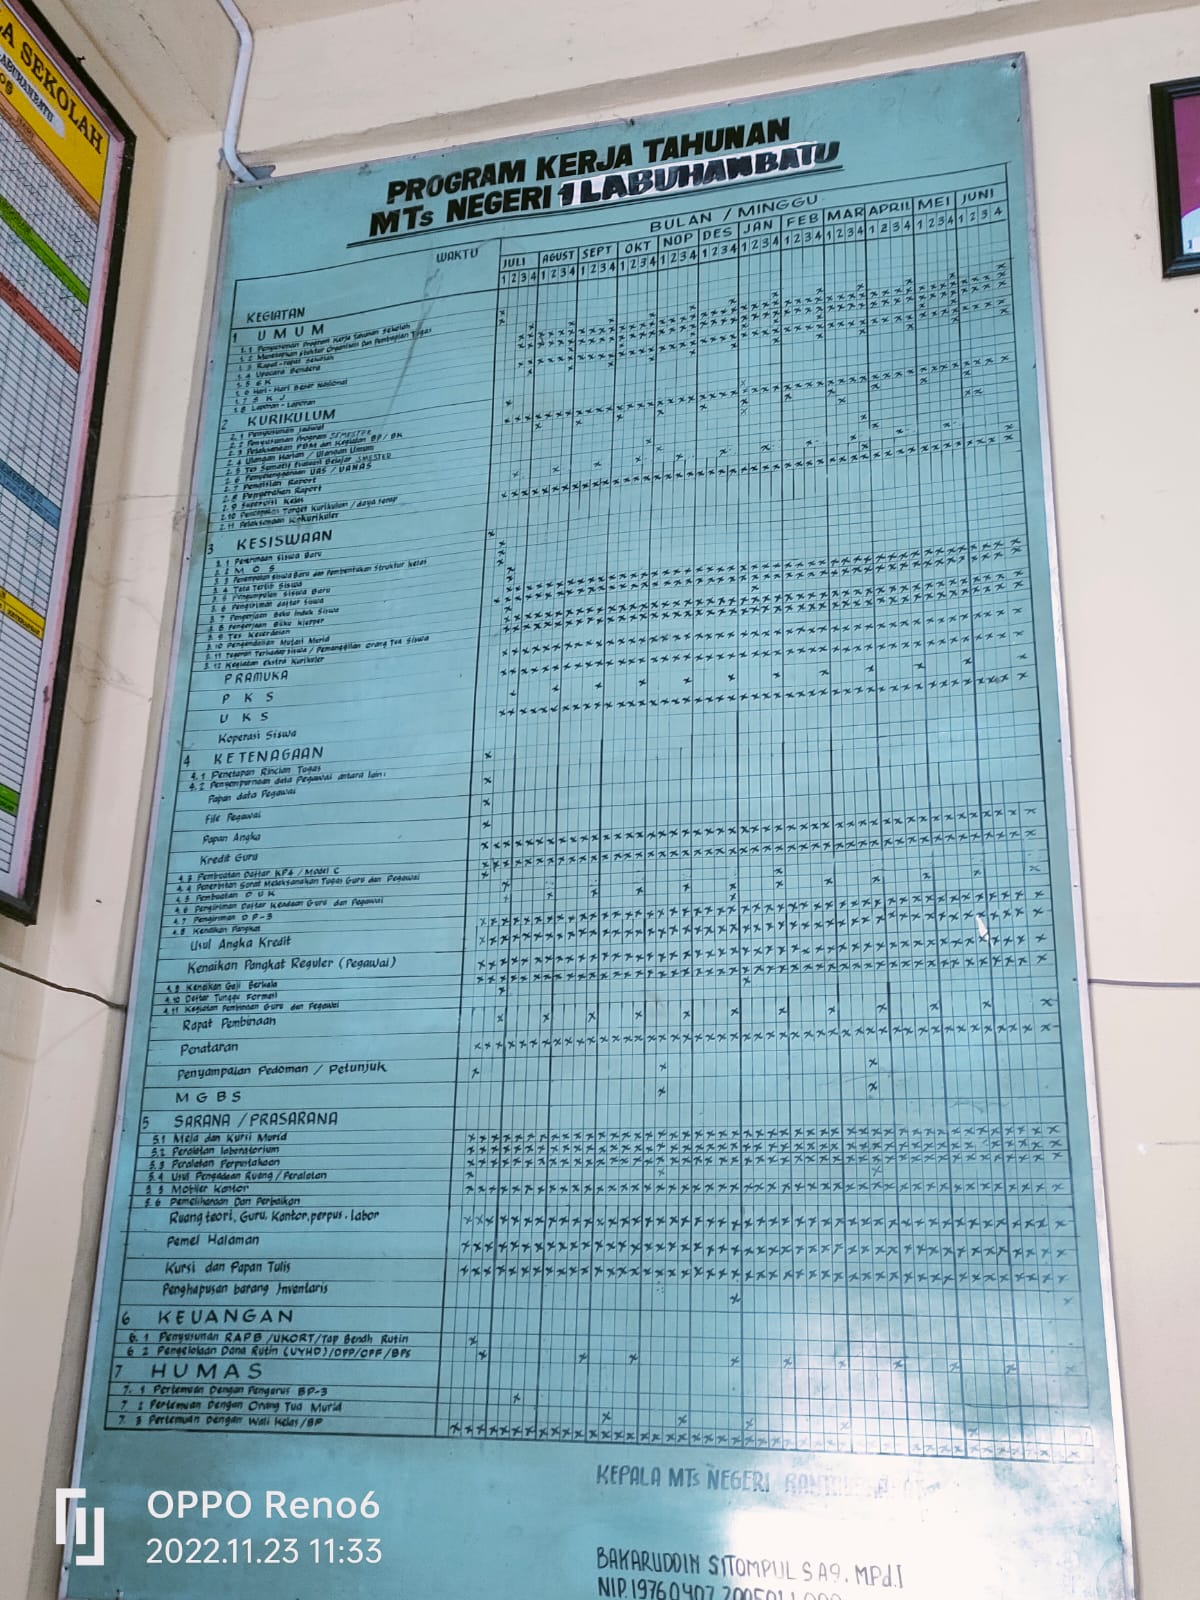 A SEKOLAH
PROGRAM KERJA TAHUNAN
MTs NEGERI 1 LABUHANBATU
WAKTU
BULAN / MINGGU
JULI AGUST SEPT OKT NOP DES JAN FEB MAR APRIL MEI JUNI
1 2 3 4 1 2 3 4 1 2 3 4 1 2 3 4 1 2 3 4 1 2 3 4 1 2 3 4 1 2 3 4 1 2 3 4 1 2 3 4 1 2 3 4 1 2 3 4
KEGIATAN
1 UMUM
1.1 Penyusunan Program Kerja Tahunan Sekolah
1.2 Menetapkan struktur Organisasi Dan Pembagian Tugas
1.3 Rapat-rapat Sekolah
1.4 Upacara Bendera
1.5 6K
1.6 Hari-Hari Besar Nasional
1.7 S K J
1.8 Laporan-Laporan
2 KURIKULUM
2.1 Penyusunan Jadwal
2.2 Penyusunan Program SEMESTER
2.3 Pelaksanaan PBM dan Kegiatan BP/BK
2.4 Ulangan Harian / Ulangan Umum
2.5 Tes Sumatif Evaluasi Belajar SMESTER
2.6 Penyelenggaraan UAS / UANAS
2.7 Penulisan Raport
2.8 Penyerahan Raport
2.9 Supervisi Kelas
2.10 Pencapaian Target Kurikulum / daya serap
2.11 Pelaksanaan Kokurikuler
3 KESISWAAN
3.1 Penerimaan Siswa Baru
3.2 M O S
3.3 Penempatan Siswa Baru dan Pembentukan Struktur kelas
3.4 Tata Tertib Siswa
3.5 Pengumpulan Siswa Baru
3.6 Pengiriman daftar Siswa
3.7 Pengerjaan Buku Induk Siswa
3.8 Pengerjaan Buku Kleper
3.9 Tes Kecerdasan
3.10 Pengendalian Mutasi Murid
3.11 Teguran Terhadap siswa / Pemanggilan Orang Tua Siswa
3.12 Kegiatan Ekstra Kurikuler
PRAMUKA
P K S
U K S
Koperasi Siswa
4 KETENAGAAN
4.1 Penetapan Rincian Tugas
4.2 Penyempurnaan data Pegawai antara lain:
Papan data Pegawai
File Pegawai
Papan Angka
Kredit Guru
4.3 Pembuatan Daftar KP4 / Model C
4.4 Penerbitan Surat Melaksanakan Tugas Guru dan Pegawai
4.5 Pembuatan D U K
4.6 Pengiriman Daftar Keadaan Guru dan Pegawai
4.7 Pengiriman DP-3
4.8 Kenaikan Pangkat
Usul Angka Kredit
Kenaikan Pangkat Reguler (Pegawai)
4.9 Kenaikan Gaji Berkala
4.10 Daftar Tunggu Formasi
4.11 Kegiatan Pembinaan Guru dan Pegawai
Rapat Pembinaan
Penataran
Penyampaian Pedoman / Petunjuk
M G B S
5 SARANA / PRASARANA
5.1 Meja dan Kursi Murid
5.2 Peralatan laboratorium
5.3 Peralatan Perpustakaan
5.4 Usul Pengadaan Ruang / Peralatan
5.5 Mobiler Kantor
5.6 Pemeliharaan Dan Perbaikan
Ruang teori, Guru, Kantor, perpus, labor
Pemel Halaman
Kursi dan Papan Tulis
Penghapusan barang Inventaris
6 KEUANGAN
6.1 Penyusunan RAPB /UKORT/Tap Bendh Rutin
6 2 Pengelolaan Dana Rutin (UYHD)/DPP/OPF/BPS
7 HUMAS
7.1 Pertemuan Dengan Pengurus BP-3
7 2 Pertemuan Dengan Orang Tua Murid
7.3 Pertemuan Dengan Wali Kelas/BP
KEPALA MTs NEGERI
BAKARUDDIN SITOMPUL S Ag. MPd.I
OPPO Reno6
2022.11.23 11:33